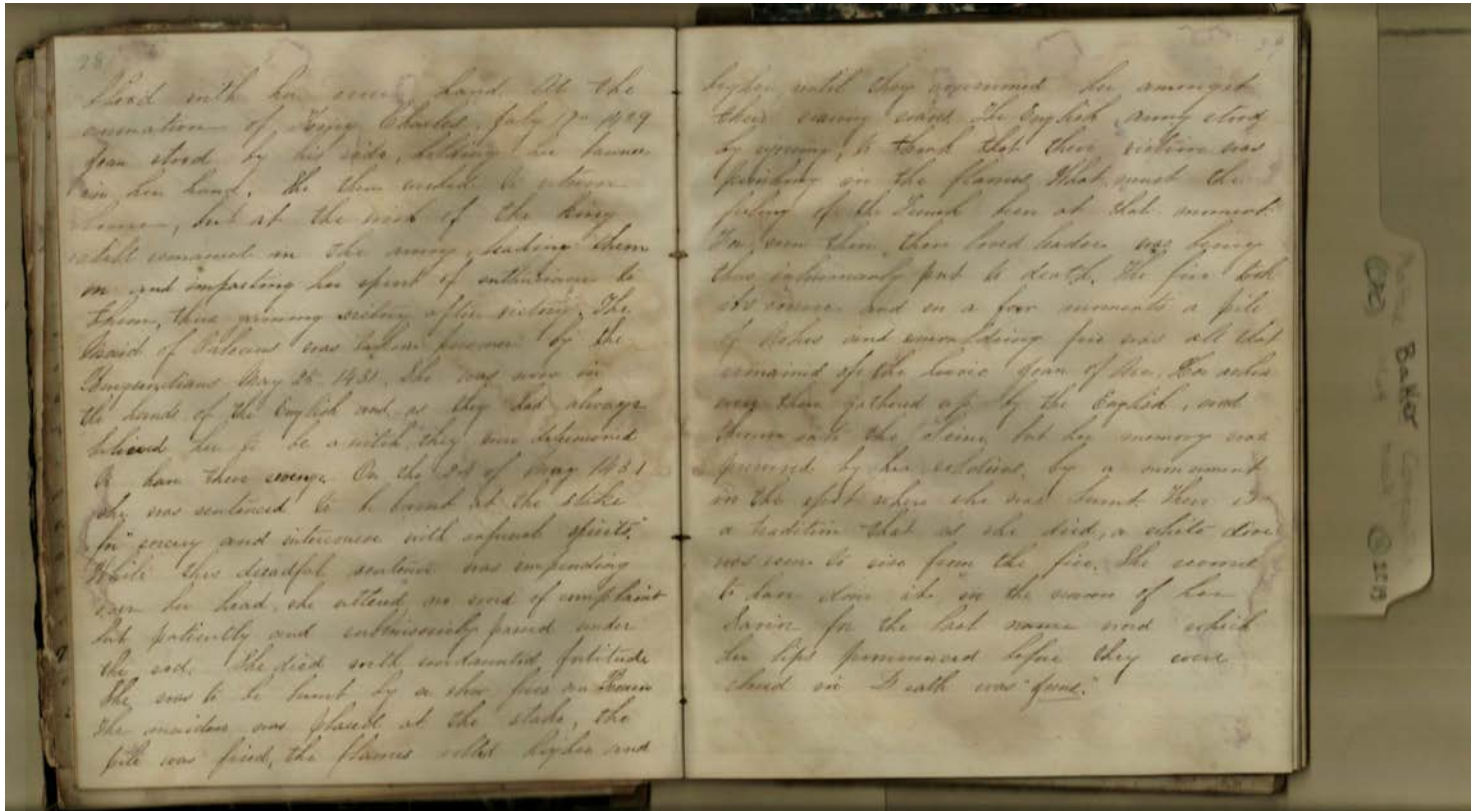 28
blood with her own hand. At the
coronation of King Charles, July 17th 1429
Joan stood by his side, holding her banner
in her hand. She then wished to return
home, but at the wish of the king
still remained in the army, leading them
on and imparting her spirit of enthusiasm to
them, thus gaining victory after victory. The
Maid of Orleans was taken prisoner by the
Burgundians May 25 1431. She was now in
the hands of the English and as they had always
believed her to be a witch they were determined
to have their revenge. On the 24 of May 1431
she was sentenced to be burnt at the stake
for "sorcery and intercourse with infernal spirits."
While this dreadful sentence was impending
over her head, she uttered no word of complaint
but patiently and submissively passed under
the rod. She died with undaunted fortitude
She was to be burnt by a slow fire in Rouen
The maiden was placed at the stake, the
pile was fired, the flames rolled higher and
29
higher until they consumed her amongst
their roaring waves. The English army stood
by, to think that their victim was
perishing in the flames. What must the
feling of the French been at that moment.
For even then their loved leader was being
thus inhumanly put to death. The fire took
its course and in a few moments a pile
of ashes and smouldering fire was all that
remained of the heroic Joan of Arc. Her ashes
were then gathered up by the English, and
thrown into the Seine, but her memory was
preserved by her relations, by a monument
in the spot where she was burnt. There is
a tradition that as she died, a white dove
was seen to rise from the fire. She seemed
to have done it in the name of her
Savior for the last name word which
her lips pronounced before they were
closed in Death was "Jesus."
Batter